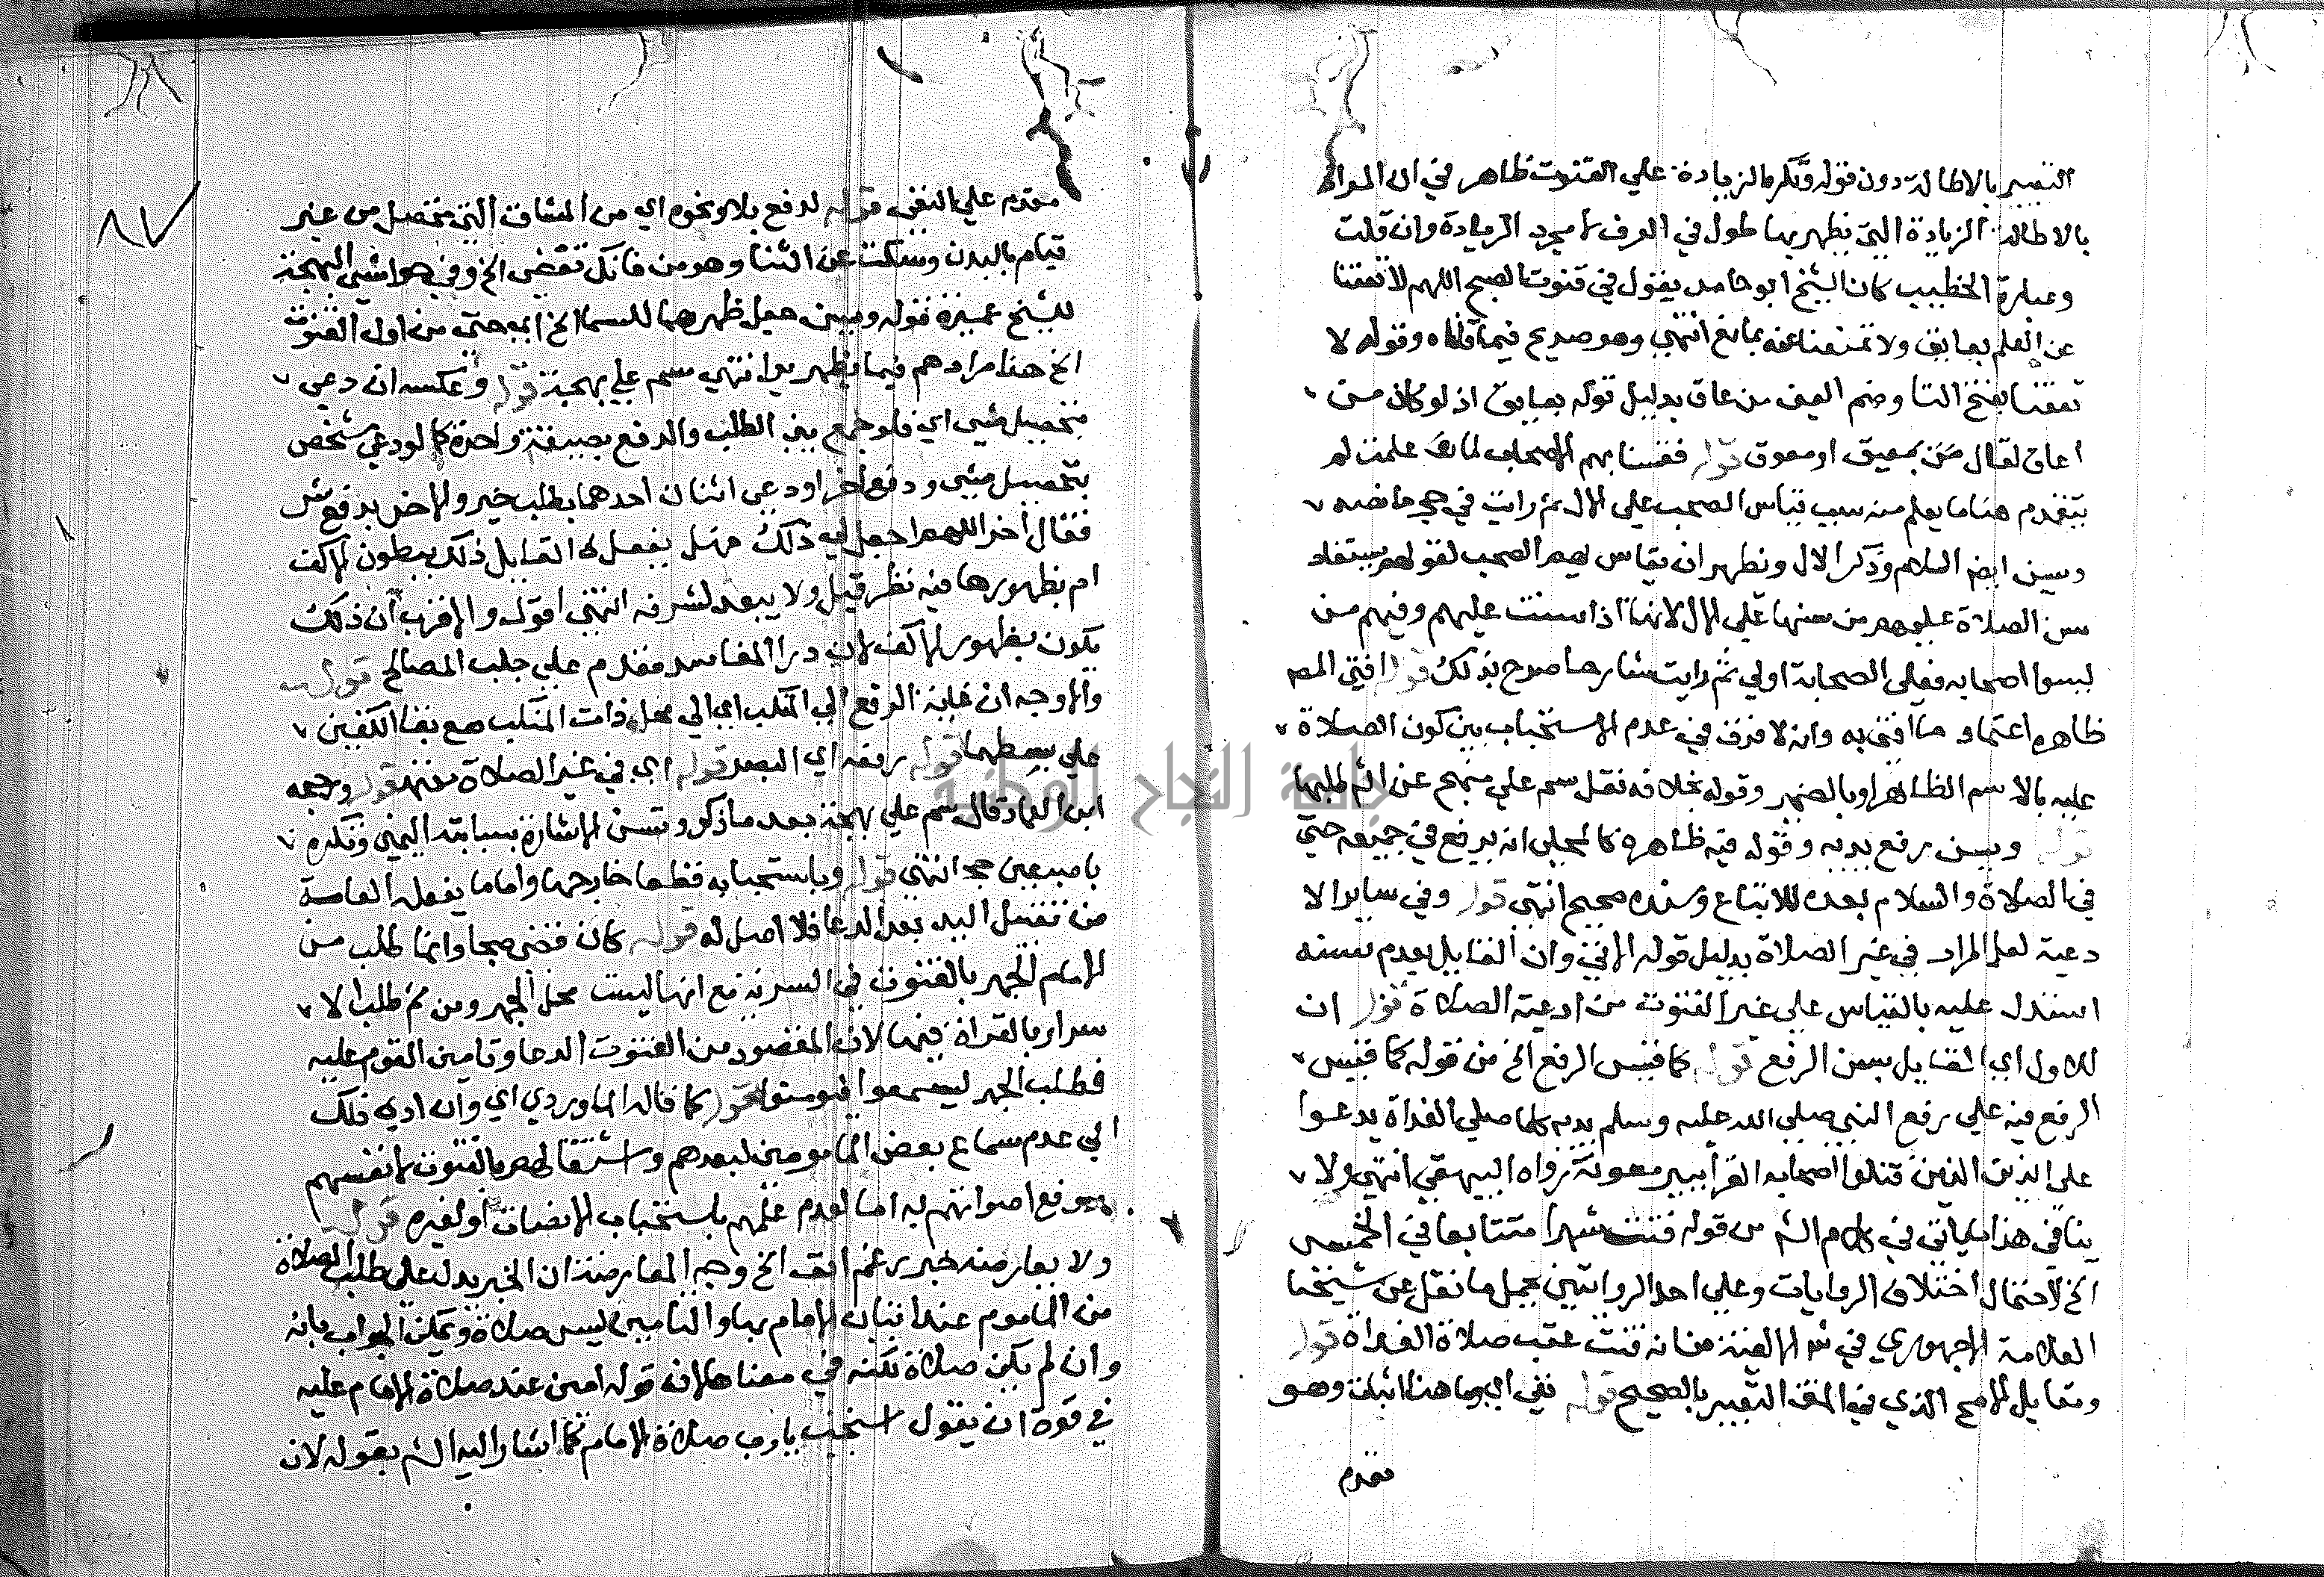 التعبير بالاطالة دون قوله وتكره الزيادة علي القنوت ظاهر في ان المراد
بالاطالة الزيادة التي يظهر بها طول في العرف لا مجرد الزيادة وان قلت
وعبارة الخطيب كان الشيخ ابو حامد يقول في قنوت الصبح اللهم لا تعقنا
عن العلم بعايق ولا تمنعنا عنه بمانع انتهي وهو صريح فيما قلناه وقوله لا
تعقنا بفتح التا وضم العين من عاق بدليل قوله بعايق اذ لو كان من
اعاق لقال بمعيق او معوق قوله فقسنا بهم الاصحاب لما علمت لم
يتقدم هنا ما يعلم منه سبب قياس الصحب علي الال ثم رايت في حج ما نصه
ويسن ايضا السلام وذكر الال ويظهر ان يقاس بهم الصحب لقولهم يستفاد
سن الصلاة عليهم من سنها علي الال لانها اذا سنت عليهم وفيهم من
ليسوا اصحابه فعلي الصحابة اولي ثم رايت شارحا صرح بذلك قوله افتي المص
ظاهره اعتماد ما افتي به وانه لا فرق في عدم الاستحباب بين كون الصلاة
عليه بالاسم الظاهر او بالضمير وقوله بخلافه نقل سم علي منهج عن الشم طلبها
قوله ويسن رفع يديه وقوله فيه ظاهره كالمحلي انه يرفع في جميعه حتي
في الصلاة والسلام بعده للاتباع وسنده صحيح انتهي قوله وفي ساير الا
دعية لعل المراد في غير الصلاة بدليل قوله الاتي وان القايل بعدم سنه
استدل عليه بالقياس علي غير القنوت من ادعية الصلاة قوله ان
للاول اي القايل بسن الرفع قوله كما قيس الرفع الخ من قوله كما قيس
الرفع فيه علي رفع النبي صلي الله عليه وسلم يديه كلما صلي الغداة يدعوا
علي الذين قتلوا اصحابه القرأ ببير معونة رواه البيهقي انتهي ولا
ينافي هذا ما ياتي في كلام الشم من قوله قنت شهرا متتابعا في الخمس
الخ لاحتمال اختلاف الروايات وعلي احد الروايتين يحمل ما نقل عن شيخنا
العلامة الاجهوري في شرح الالفية من انه قنت عقب صلاة الغداة قوله
ومقابل الاصح الذي فيه المص التعبير بالصحيح قوله نفي اليها هذا اثبات وهو
مقدم
مقدم علي النفي قوله لدفع بلا ونحوه اي من المشاق التي تحصل من غير
قيام بالبدن وسكت عن الثنا وهو من فانك تقضي الخ وفي حواشي البهجة
للشيخ عميرة قوله ويسن جعل ظهرهما للسما الخ اي حتي من اول القنوت
الخ هذا مرادهم فيما يظهر انتهي سم علي بهجة قوله وعكسه ان دعي
بتحصيل شي اي فلو جمع بين الطلب والدفع بصيغة واحدة كما لو دعي شخص
بتحصيل شي ودفع اخر او دعي اثنان احدهما بطلب خير والاخر بدفع شر
فقال اخر اللهم اجعل لي ذلك فهل يفعل القايل ذلك ببطون الاكف
ام بظهورها فيه نظر قيل ولا يبعد لشرفه انتهي اقول والاقرب ان ذلك
يكون بظهور الاكف لان درا المفاسد مقدم علي جلب المصالح قوله
والاوجه ان غاية الرفع الي المنكب اي الي محل ذات المنكب مع بقا الكفين
علي بسطهما قوله رفعه اي البصر قوله اي في غير الصلاة قوله ورجحه
ابن العماد قال سم علي بهجة بعد ما ذكر وتسن الاشارة بسبابته اليمني وتكره
باصبعين حج انتهي قوله وباستحبابه قطعا خارجها واما ما يفعله العامة
من تقبيل اليد بعد الدعا فلا اصل له قوله كان قضي صبحا وانما طلب من
الامام الجهر بالقنوت في السرية مع انها ليست محل الجهر ومن ثم طلب الا
سرار بالقراة فيها لان المقصود من القنوت الدعا وتامين القوم عليه
فطلب الجهر ليسمعوا فيومنوا قوله كما قاله الماوردي اي وان ادي ذلك
الي عدم سماع بعض المامومين لبعدهم واشتغالهم بالقنوت لانفسهم
ورفع اصواتهم به اما لعدم علمهم باستحباب الانصات او لغيره قوله
ولا يعارضه خبر رغم انف الخ وجه المعارضة ان الخبر يدل علي طلب الصلاة
من الماموم عند اتيان الامام بها والتامين ليس صلاة ويمكن الجواب بانه
وان لم يكن صلاة لكنه في معناها لان قوله امين عند صلاة الامام عليه
في قوة ان يقول استجب يارب صلاة الامام كما اشار اليه الشم بقوله لان